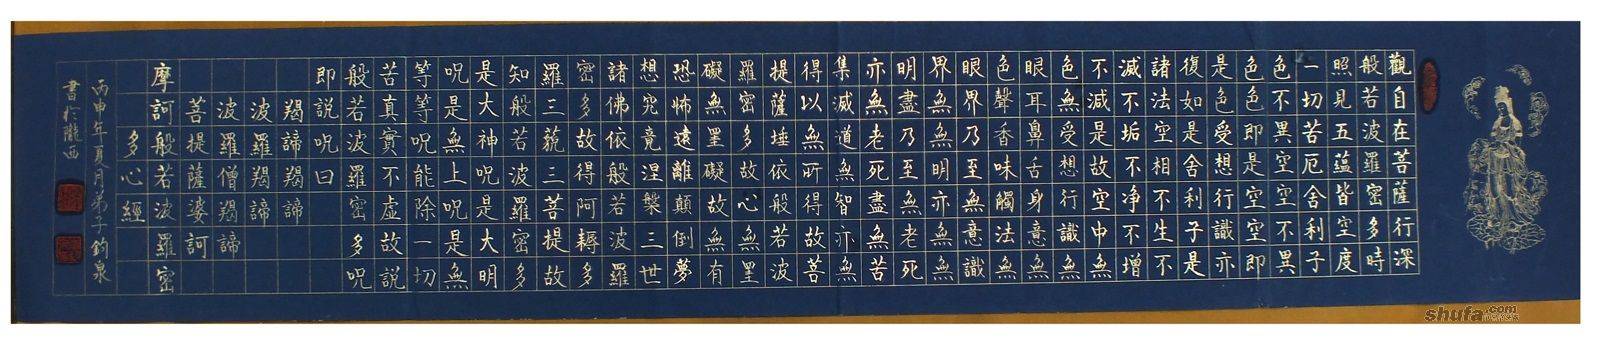 觀自在菩薩行深
般若波羅密多時
照見五蘊皆空度
一切苦厄舍利子
色不異空空不異
色色即是空空即
是色受想行識亦
復如是舍利子是
諸法空相不生不
滅不垢不净不增
不減是故空中無
色無受想行識無
眼耳鼻舌身意無
色聲香味觸法無
眼界乃至無意識
界無無明亦無無
明盡乃至無老死
亦無老死盡無苦
集滅道無智亦無
得以無所得故菩
提薩埵依般若波
羅密多故心無罣
礙無罣礙故無有
恐怖遠離顛倒夢
想究竟涅槃三世
諸佛依般若波羅
密多故得阿耨多
羅三藐三菩提故
知般若波羅密多
是大神呪是大明
呪是無上呪是無
等等呪能除一切
苦真實不虛故説
般若波羅密多呪
即説呪曰
羯諦羯諦
波羅羯諦
波羅僧羯諦
菩提薩婆訶
摩訶般若波羅密
多心經
丙申年夏月弟子鈞泉
書於隴西
shufa.com